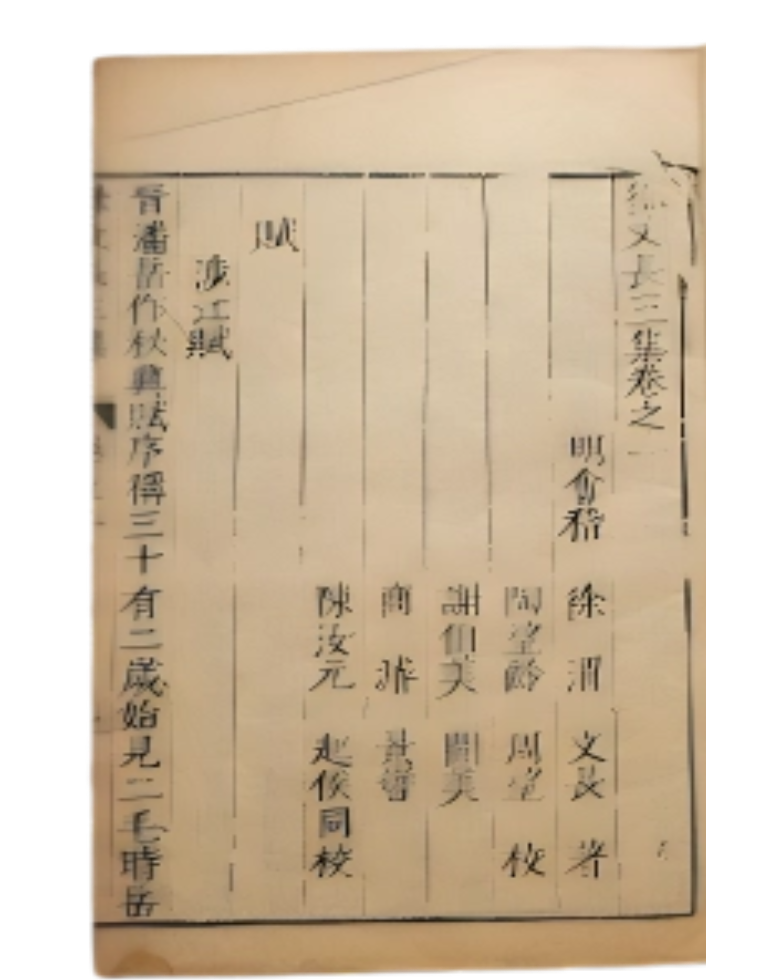 徐文長三集卷之一
明會稽 徐渭 文長 著
陶望齡 周望 校
謝伯美 開美
商濬 景哲
陳汝元 起侯同校
賦
涉江賦
晉潘岳作秋興賦序稱三十有二歲始見二毛時岳